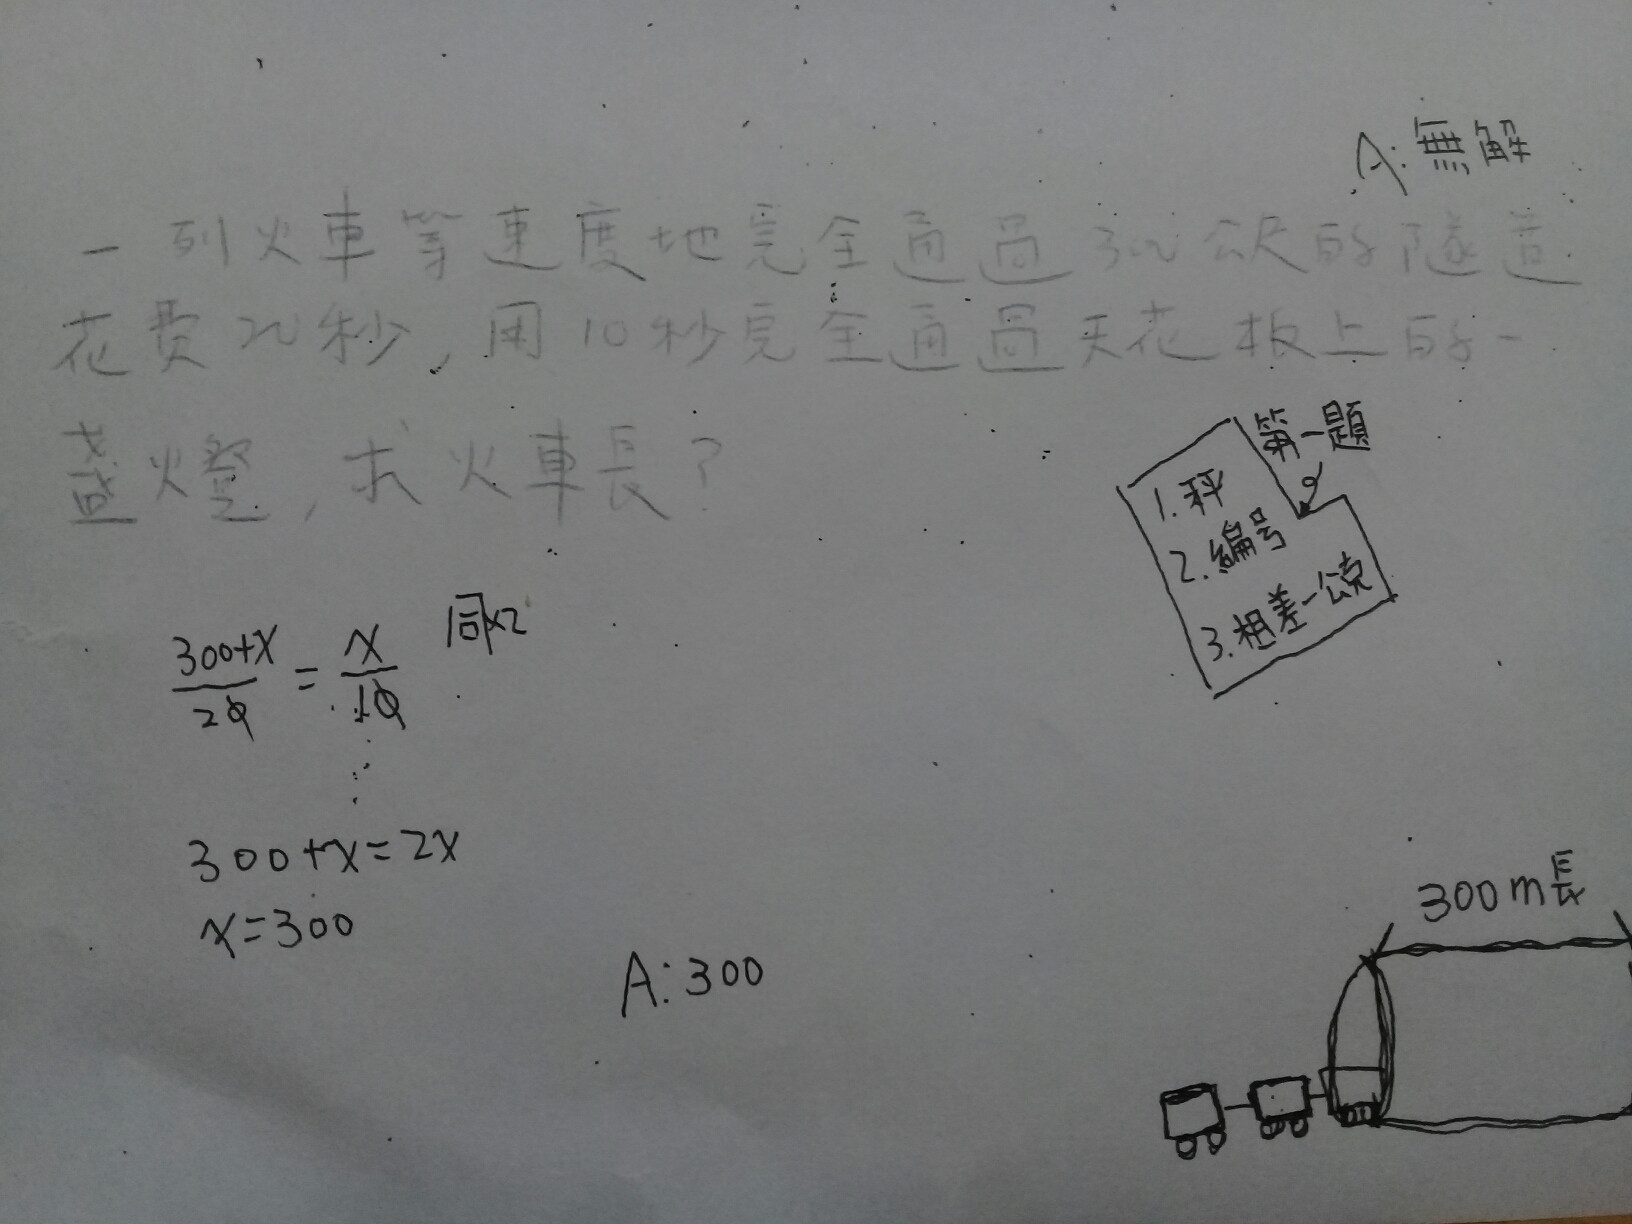 A:無解
一列火車等速度地完全通過300公尺的隧道
花費20秒,用10秒完全通過天花板上的一
盞火燈,求火車長?
第一題
1.秤
2.編号
3.相差一公克
300+x/20 = x/10 同x2
300+x=2x
x=300
A:300
300m長